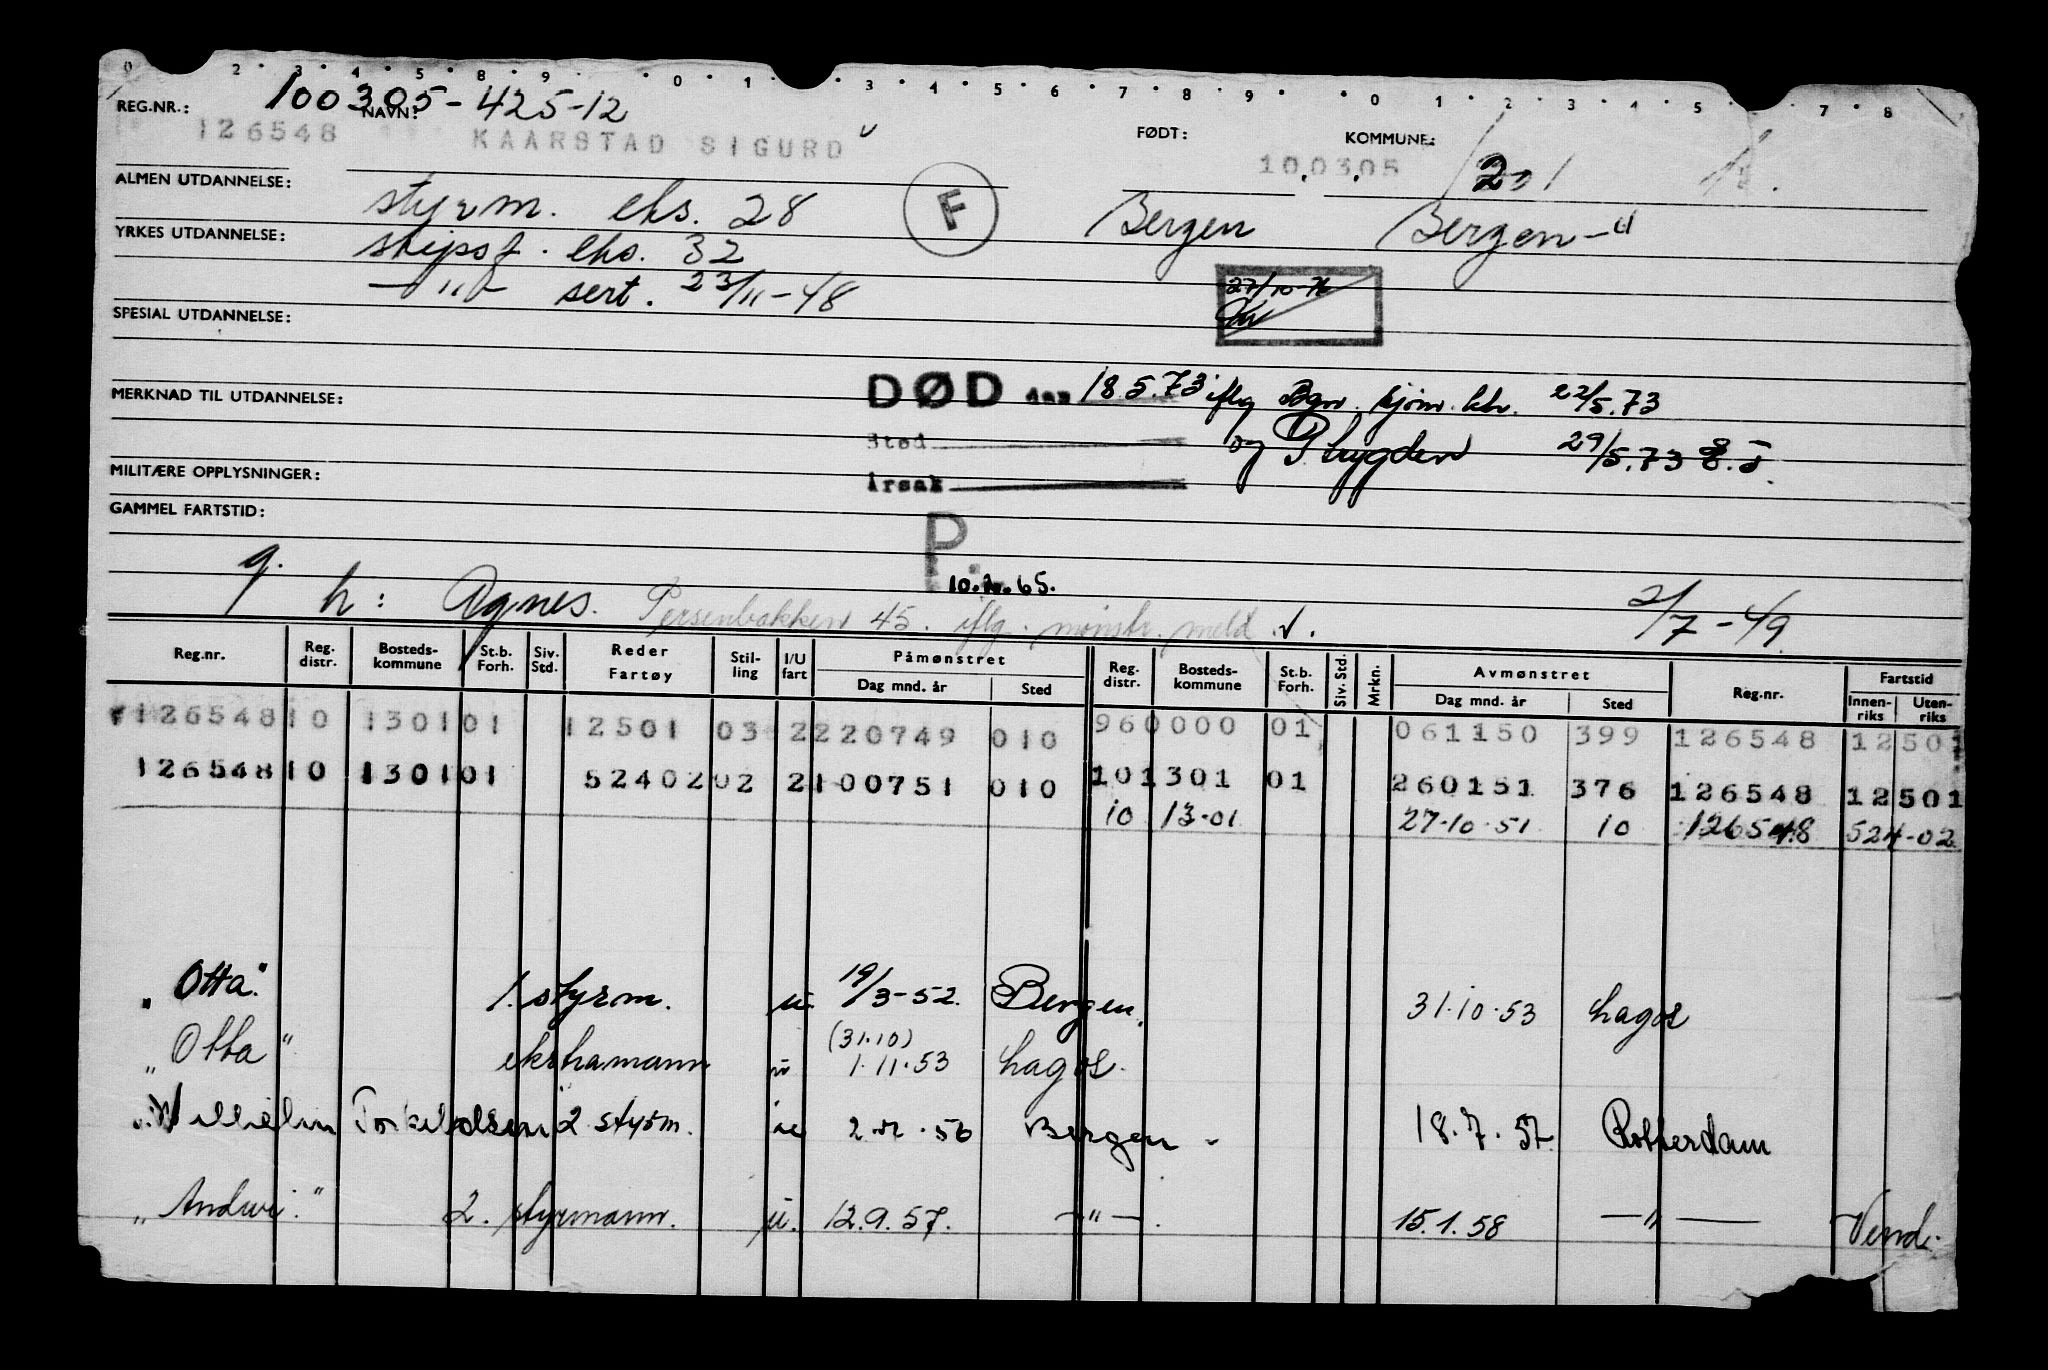 0 2 3 4 5 8 9 0 1 3 4 5 6 7 8 9 0 1 2 3 4 5 7 8
REG.NR.: 100305-425-12 NAVN: FØDT: KOMMUNE:
126548 KAARSTAD SIGURD 100305 201
ALMEN UTDANNELSE: styrm. eks. 28 F Bergen Bergen
YRKES UTDANNELSE: skipsf. eks. 32
—"— sert. 23/11-48 27/10-76
SPESIAL UTDANNELSE:
MERKNAD TIL UTDANNELSE: DØD den 18.5.73 iflg Bgn. sjøm. ktr. 22/5.73
Sted og 29/5.73
MILITÆRE OPPLYSNINGER: Årsak
GAMMEL FARTSTID: P.
10.2.65.
g. h: Agnes. Persenbakken 45. iflg. mønstr. meld. 2/7-49
Reg.nr. Reg. distr. Bosteds-kommune St.b. Forh. Siv. Std. Reder Fartøy Stil-ling I/U fart Påmønstret Dag mnd. år Sted Reg. distr. Bosteds-kommune St.b. Forh. Siv. Std. Mrkn. Avmønstret Dag mnd. år Sted Reg.nr. Fartstid Innen-riks Uten-riks
126548 10 1301 01 12501 03 2 220749 010 96 0000 01 061150 399 126548 12501
126548 10 1301 01 52402 02 2 100751 010 10 1301 01 260151 376 126548 12501
10 13-01 27-10-51 10 126548 524-02
"Otta" 1. styrm. u. 19/3-52. Bergen. 31.10.53 Lagos
(31.10)
"Otta" ekstramann u 1.11.53 Lagos.
Wilhelm Torkildsen 2 styrm. u Bergen - 18.7.57. Rotterdam
"Andwi." 2. styrmann. u. 12.9.57. —"—. 15.1.58 —"— Vend.